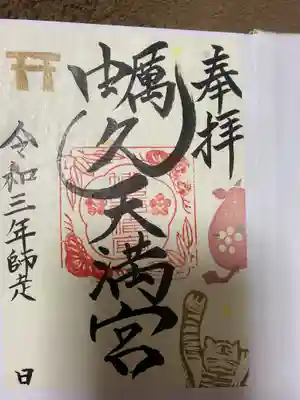 奉拝
蠣久天満宮
令和三年師走　日